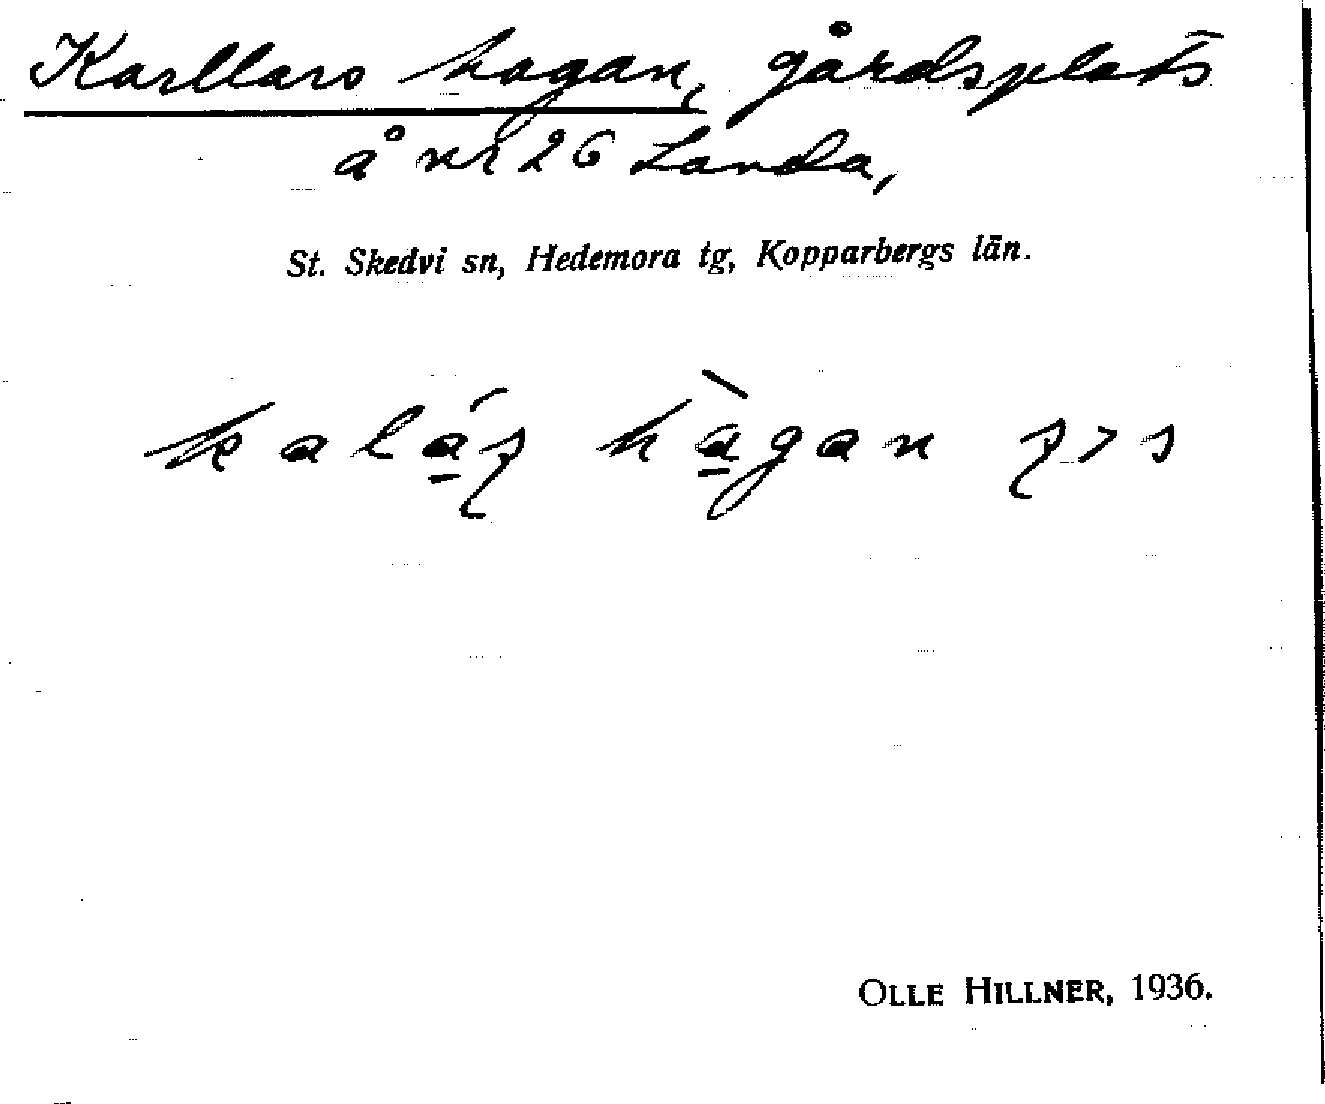 Karllars hagan, gårdsplats
å nr 26 Landa,
St. Skedvi sn, Hedemora tg, Kopparbergs län.
OLLE HILLNER, 1936.